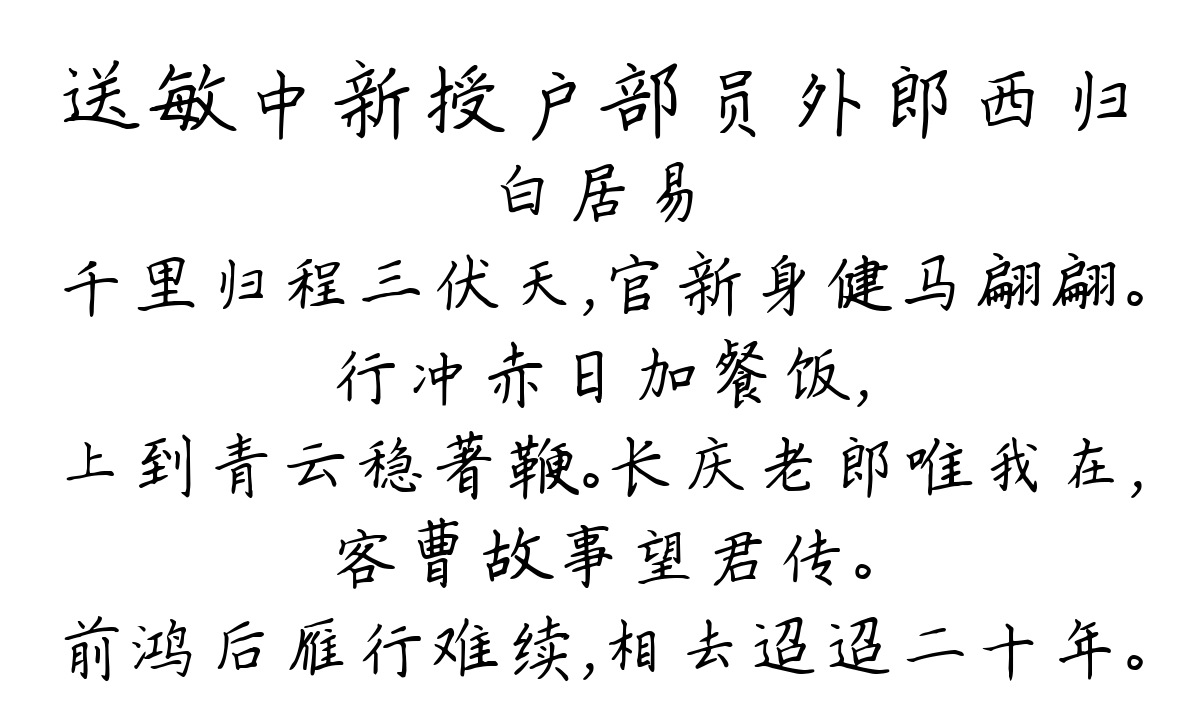 送敏中新授户部员外郎西归
白居易
千里归程三伏天,官新身健马翩翩。
行冲赤日加餐饭,
上到青云稳著鞭。长庆老郎唯我在,
客曹故事望君传。
前鸿后雁行难续,相去迢迢二十年。